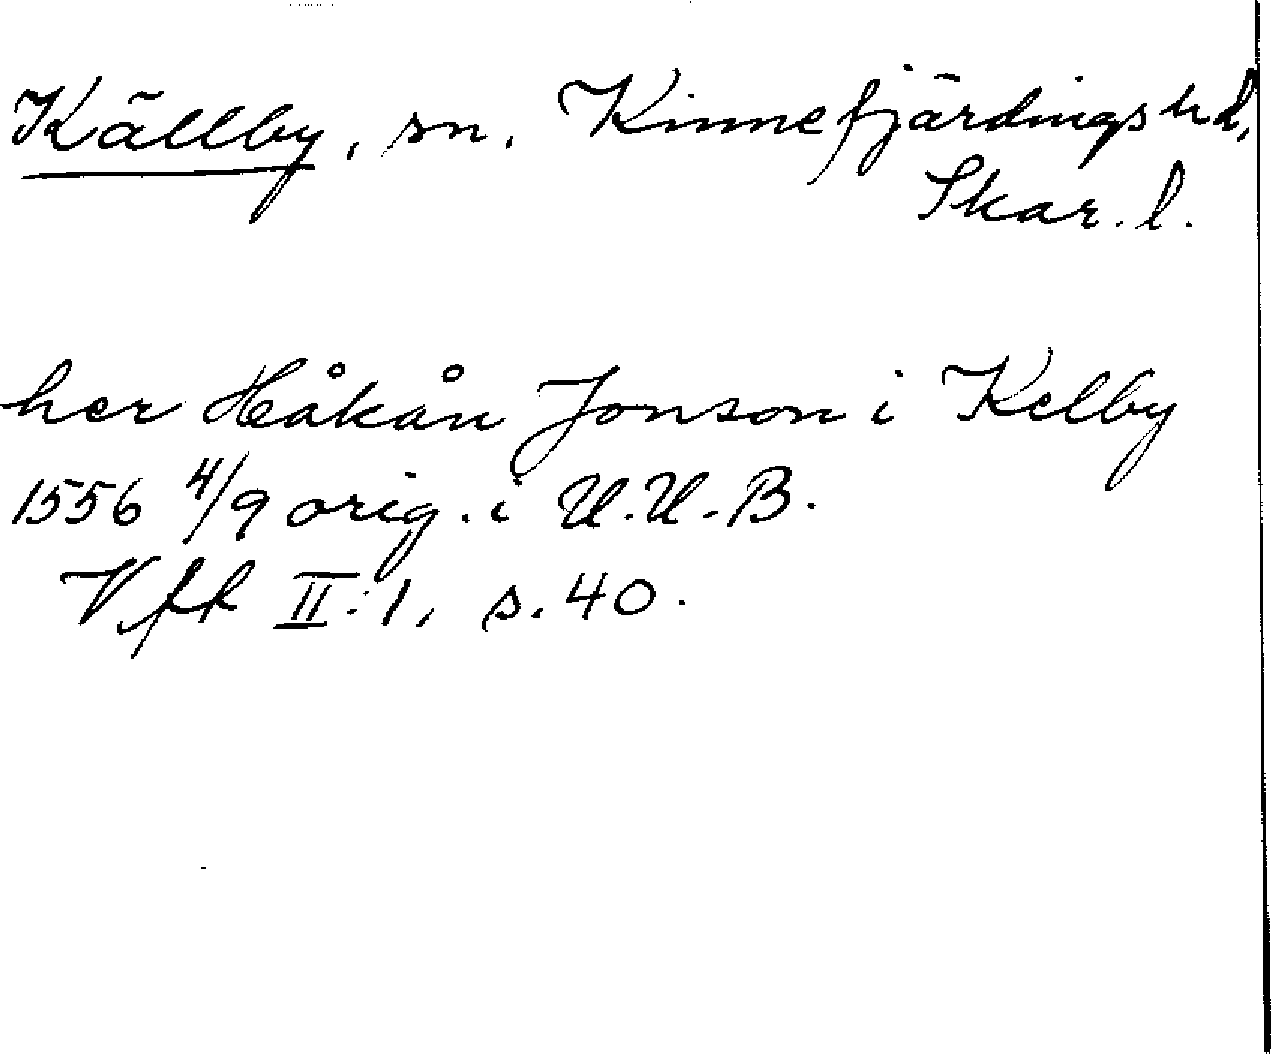 Källby, sn, Kinnefjärdings hd,
Skar. l.
her Håkån Jonson i Kelby
1556 4/9 orig. i U.U.B.
Vfk II:1, s. 40.